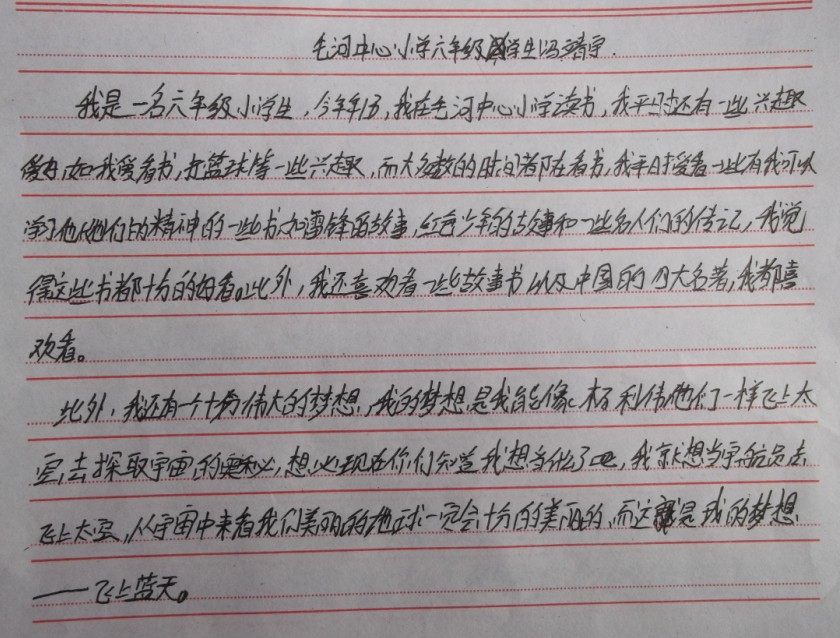 毛河中心小学六年级学生冯靖宇.
我是一名六年级小学生,今年年历,我在毛河中心小学读书,我平时还有一些兴趣
爱好,如我爱看书,打篮球等一些兴趣,而大多数的时间都在看书,我平时爱看一些有我可以
学习他们的精神的一些书如雷锋的故事,红色少年的故事和一些名人们的传记,我觉
得这些书都十分的好看。此外,我还喜欢看一些故事书以及中国的四大名著,我都喜
欢看。
此外,我还有一个十分伟大的梦想,我的梦想是我能像杨利伟他们一样飞上太
空,去探取宇宙的奥秘,想必现在你们知道我想当什么了吧,我就想当宇航员去
飞上太空,从宇宙中来看我们美丽的地球一定会十分的美丽的,而这就是我的梦想
——飞上蓝天。